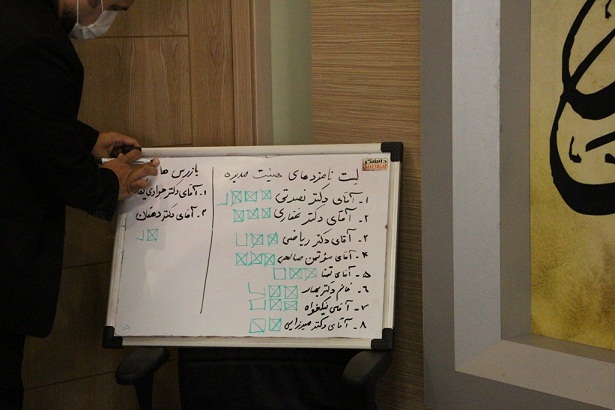 لیست نامزدهای هیئت مدیره
۱- آقای دکتر تصدیقی
۲- آقای دکتر غفاری
۳- آقای دکتر ریاضی
۴- آقای مؤتمن صالحی
۵- آقای تمنا
۶- خانم دکتر بهار
۷- آقای نیکخواه
۸- آقای دکتر میرزایی
بازرس ها
۱- آقای دکتر جوادی
۲- آقای دکتر دهقان